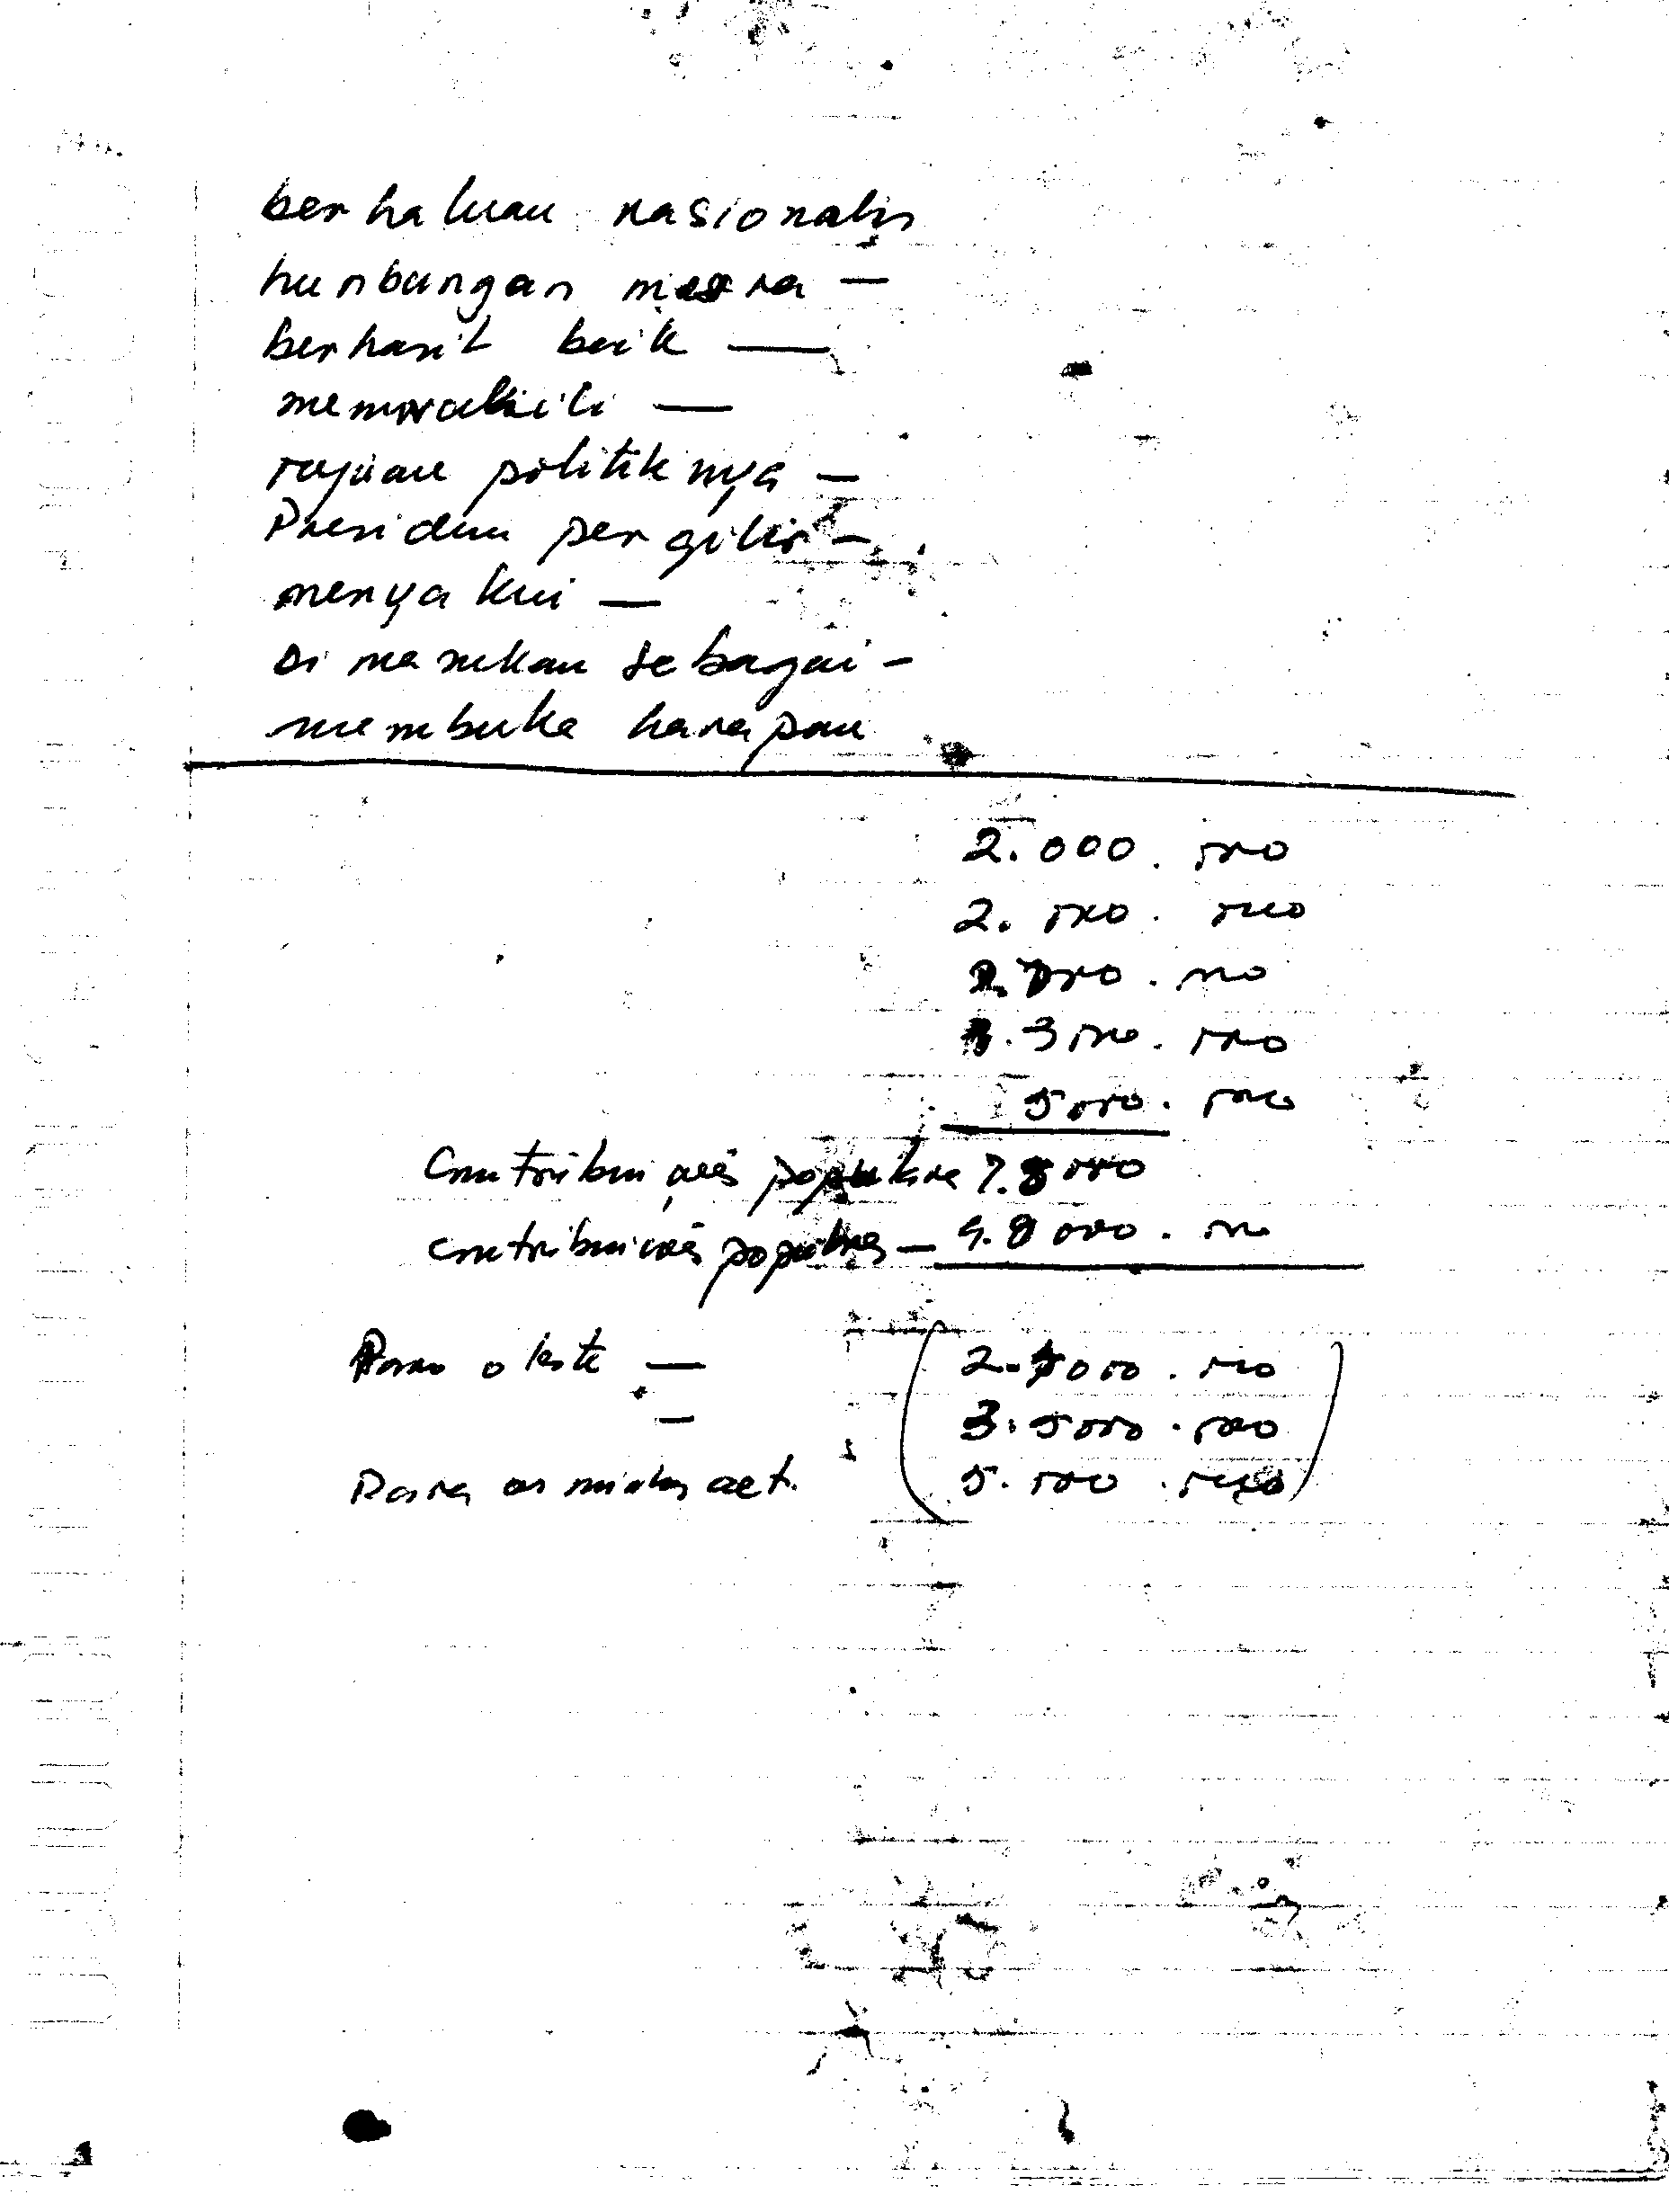 berhaluan nasionalis
hunbungan mesra —
berhasil baik —
memwakili —
tujuan politiknya —
Presiden pergilir —
menyakui —
Di masukan sebagai —
membuka harapan
2.000.000
2.000.000
2.000.000
3000.000
5000.000
Contribuições populares 7.8000
contribuições populares — 9.8000.000
Para o leste — (2.5000.000
— 3.5000.000
Para as minhas act. 5.000.000)